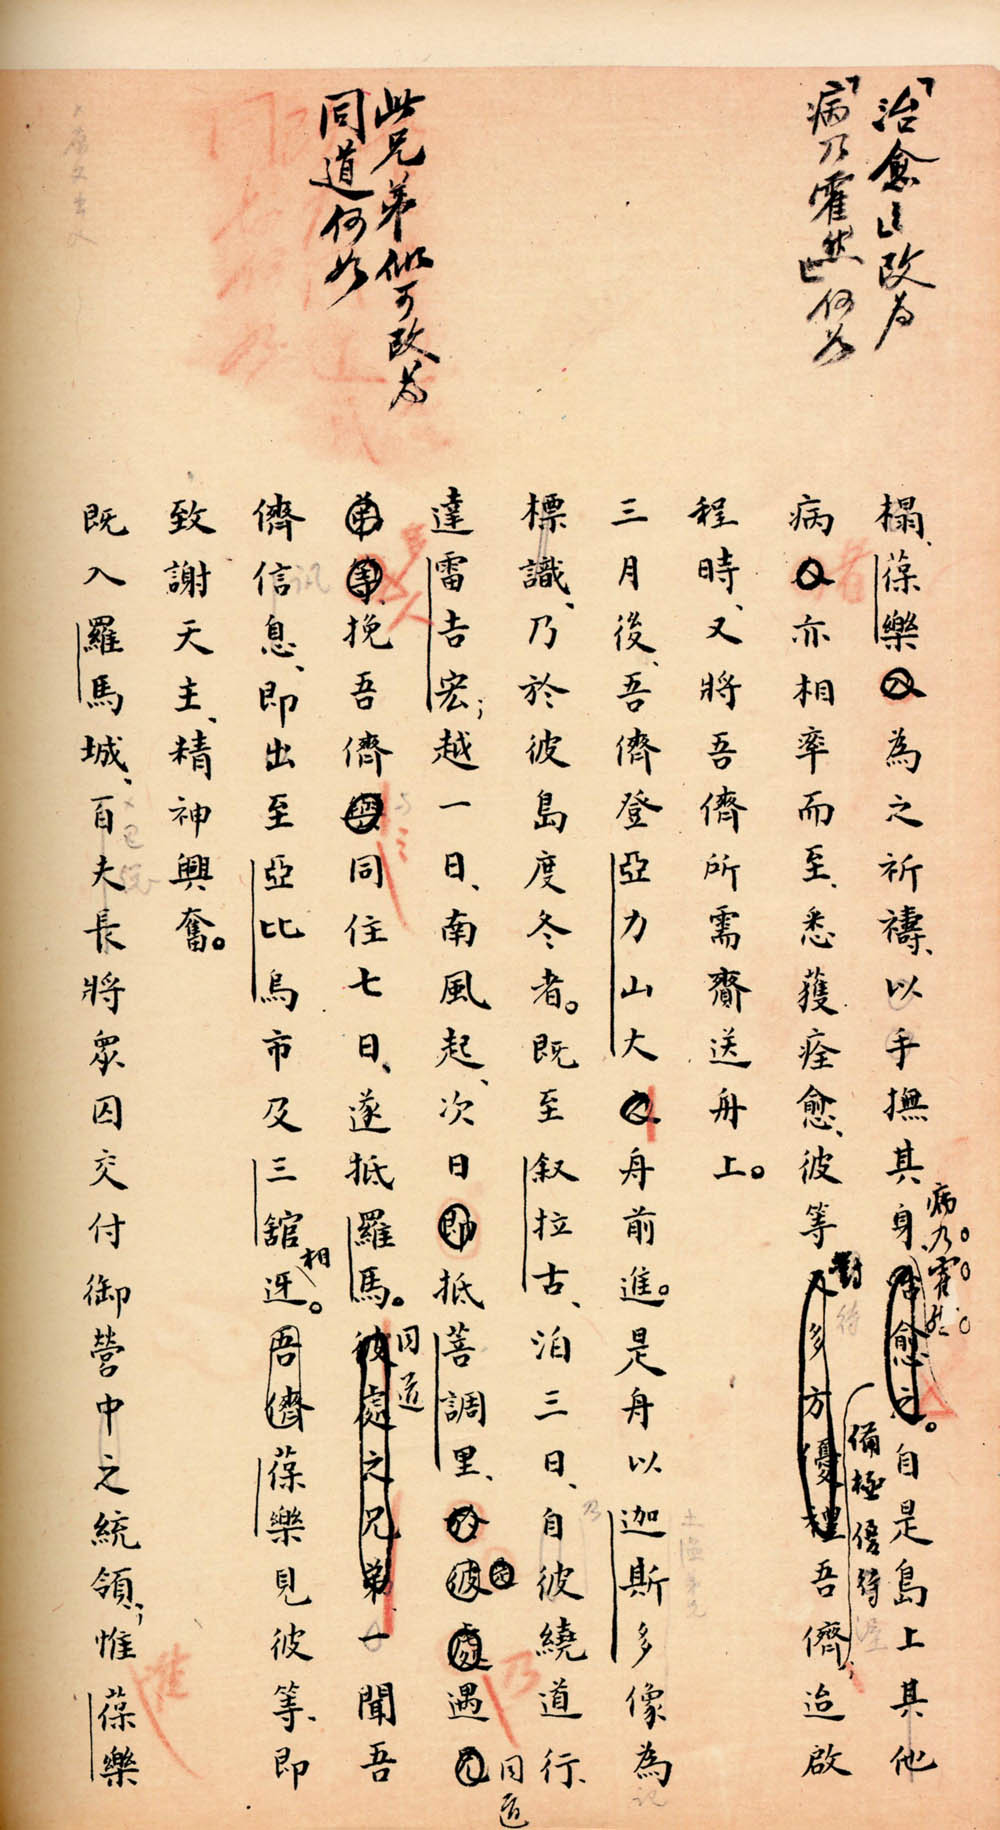 「治愈」改為
「病乃霍然」何如
此兄弟似可改為
同道何如
榻、葆樂乃為之祈禱、以手撫其身治愈之。自是島上其他
病乃霍然
病人亦相率而至、悉獲痊愈、彼等又多方優禮吾儕；迨啟
對
備極優待
程時、又將吾儕所需齎送舟上。
三月後、吾儕登亞力山大之舟前進。是舟以迦斯多像為
標識、乃於彼島度冬者。既至叙拉古、泊三日、自彼繞道行、
達雷吉宏；越一日、南風起、次日即抵菩調里、於彼處遇
同道
弟等、挽吾儕與同住七日、遂抵羅馬。彼處之兄弟一聞吾
同道
儕信息、即出至亞比烏市及三舘迓。吾儕葆樂見彼等、即
相
致謝天主、精神興奮。
既入羅馬城、百夫長將眾囚交付御營中之統領；惟葆樂